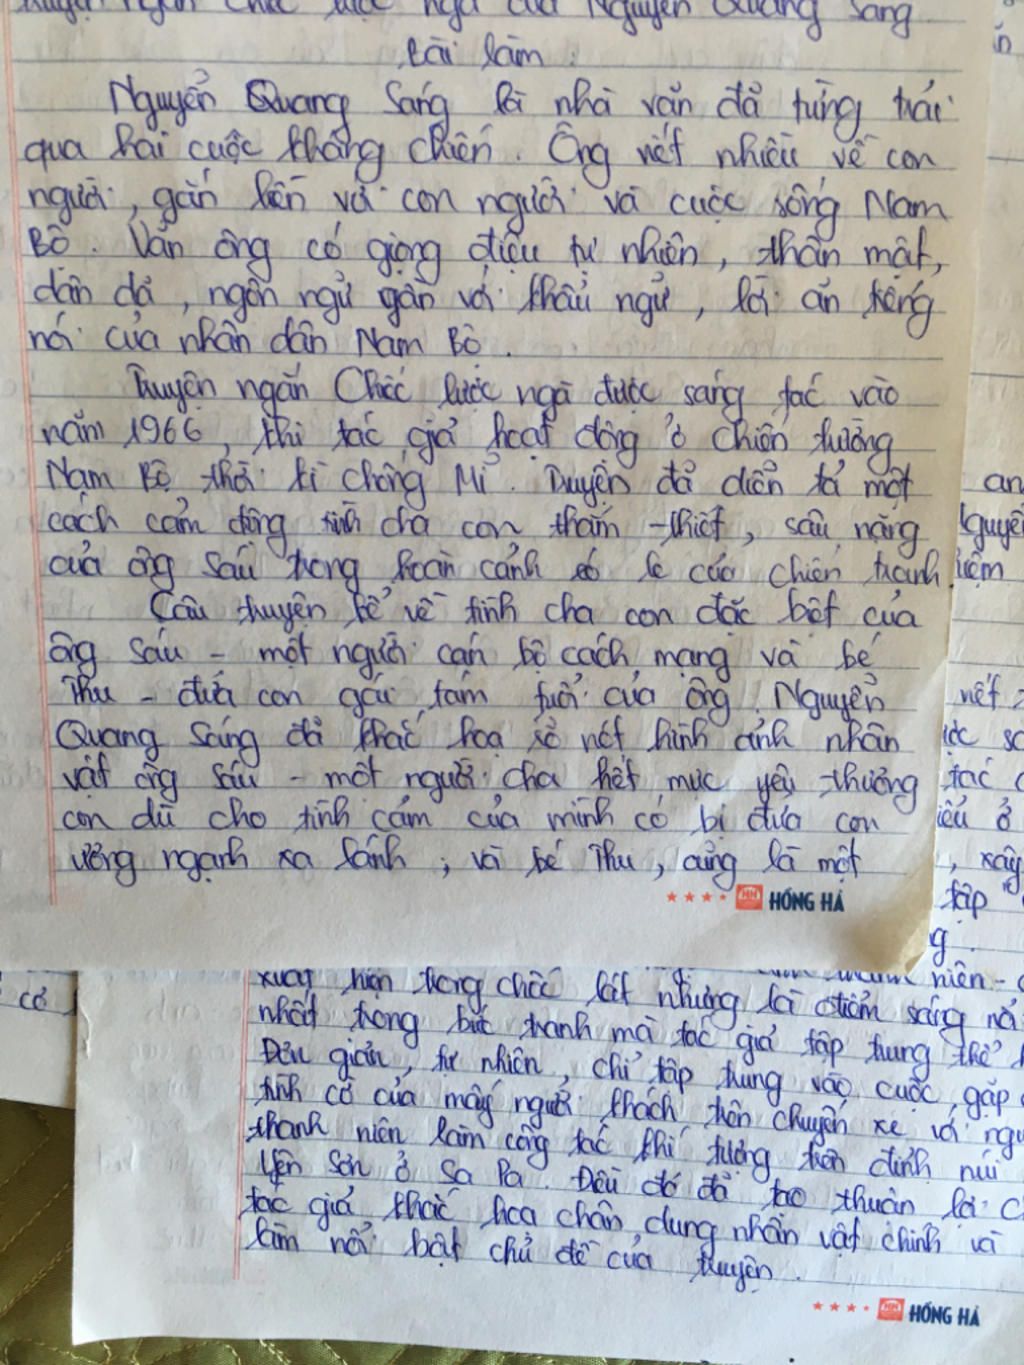 truyện ngắn Chiếc lược ngà của Nguyễn Quang Sáng
Bài làm:
Nguyễn Quang Sáng là nhà văn đã từng trải
qua hai cuộc kháng chiến. Ông viết nhiều về con
người, gắn liền với con người và cuộc sống Nam
Bộ. Văn ông có giọng điệu tự nhiên, thân mật,
dân dã, ngôn ngữ gần với khẩu ngữ, lời ăn tiếng
nói của nhân dân Nam Bộ.
Truyện ngắn Chiếc lược ngà được sáng tác vào
năm 1966, khi tác giả hoạt động ở chiến trường
Nam Bộ thời kì chống Mĩ. Truyện đã diễn tả một
cách cảm động tình cha con thắm thiết, sâu nặng
của ông Sáu trong hoàn cảnh éo le của chiến tranh.
Câu truyện kể về tình cha con đặc biệt của
ông Sáu - một người cán bộ cách mạng và bé
Thu - đứa con gái tám tuổi của ông. Nguyễn
Quang Sáng đã khắc hoạ rõ nét hình ảnh nhân
vật ông Sáu - một người cha hết mực yêu thương
con dù cho tình cảm của mình có bị đứa con
ương ngạnh xa lánh, và bé Thu, cũng là một
HỒNG HÀ
an
Nguyễ
iệm
nét
tác
iểu ở
, xây
tập
g.
có
niên -
xuất hiện trong chốc lát nhưng là điểm sáng nổ
nhất trong bức tranh mà tác giả tập trung thể
Đơn giản, tự nhiên, chỉ tập trung vào cuộc gặp
tình cờ của mấy người khách trên chuyến xe với ngư
thanh niên làm công tác khí tượng trên đỉnh núi
Yên Sơn ở Sa Pa. Điều đó đã tạo thuận lợi c
tác giả khắc hoạ chân dung nhân vật chính và
làm nổi bật chủ đề của truyện.
HỒNG HÀ